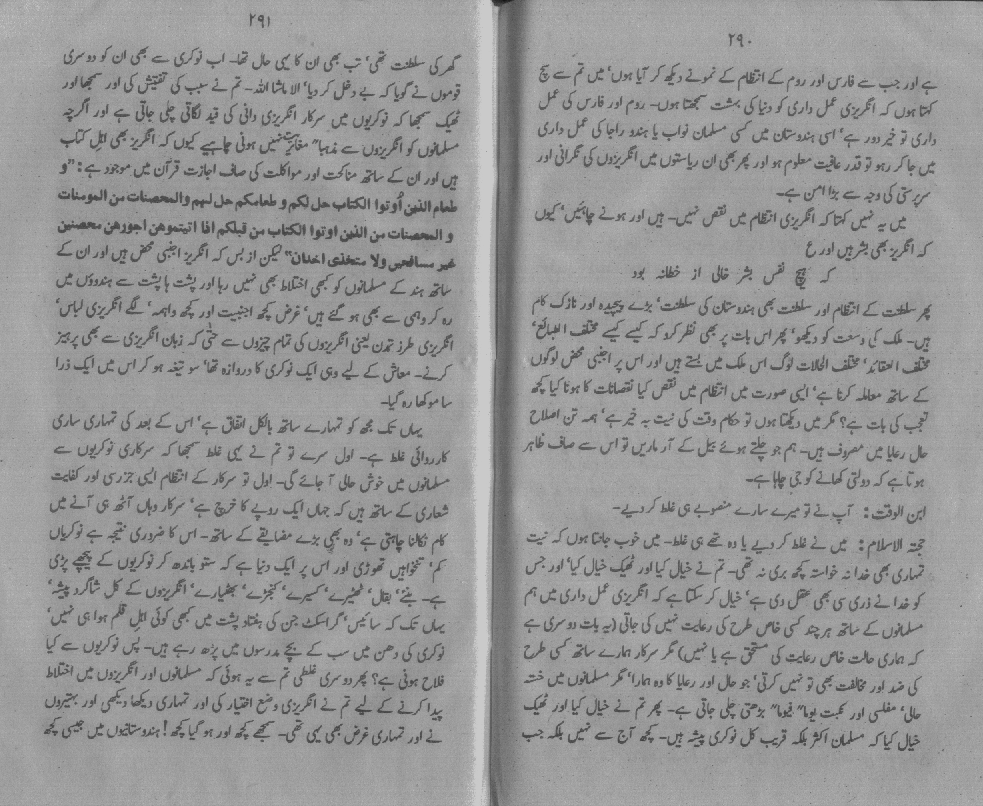 ۲۹۰
ہے اور جب سے فارس اور روم کے انتظام کے نمونے دیکھ کر آیا ہوں' میں تم سے سچ
کہتا ہوں کہ انگریزی عمل داری کو دنیا کی بہشت سمجھتا ہوں۔ روم اور فارس کی عمل
داری تو خیر دور ہے' اسی ہندوستان میں کسی مسلمان نواب یا ہندو راجا کی عمل داری
میں جا کر رہو تو قدر عافیت معلوم ہو اور پھر بھی ان ریاستوں میں انگریزوں کی نگرانی اور
سرپرستی کی وجہ سے بڑا امن ہے۔
میں یہ نہیں کہتا کہ انگریزی انتظام میں نقص نہیں۔ ہیں اور ہونے چاہئیں' کیوں
کہ انگریز بھی بشر ہیں اور ع
کہ ہیچ نفس بشر خالی از خطانہ بود
پھر سلطنت کے انتظام اور سلطنت بھی ہندوستان کی سلطنت' بڑے پیچیدہ اور نازک کام
ہیں۔ ملک کی وسعت کو دیکھو' پھر اس بات پر بھی نظر کرو کہ کیسے کیسے مختلف الطبائع'
مختلف العقائد' مختلف الحالات لوگ اس ملک میں بستے ہیں اور اس پر اجنبی محض لوگوں
کے ساتھ معاملہ کرنا ہے' ایسی صورت میں انتظام میں نقص کیا نقصانات کا ہونا کیا کچھ
تعجب کی بات ہے؟ مگر میں دیکھتا ہوں تو حکام وقت کی نیت بہ خیر ہے' ہمہ تن اصلاح
حال رعایا میں مصروف ہیں۔ ہم جو چلتے ہوئے بیل کے آر ماریں تو اس سے صاف ظاہر
ہوتا ہے کہ دولتی کھانے کو جی چاہا ہے۔
ابن الوقت: آپ نے تو میرے سارے منصوبے ہی غلط کر دیے۔
حجتہ الاسلام: میں نے غلط کر دیے یا وہ تھے ہی غلط۔ میں خوب جانتا ہوں کہ نیت
تمہاری بھی خدا نہ خواستہ کچھ بری نہ تھی۔ تم نے خیال کیا اور ٹھیک خیال کیا' اور جس
کو خدا نے ذری سی بھی عقل دی ہے' خیال کر سکتا ہے کہ انگریزی عمل داری میں ہم
مسلمانوں کے ساتھ ہر چند کسی خاص طرح کی رعایت نہیں کی جاتی (یہ بات دوسری ہے
کہ ہماری حالت خاص رعایت کی مستحق ہے یا نہیں) مگر سرکار ہمارے ساتھ کسی طرح
کی ضد اور مخالفت بھی تو نہیں کرتی' جو حال اور رعایا کا وہ ہمارا' مگر مسلمانوں میں خستہ
حالی' مفلسی اور نکبت یوما" فیوما" بڑھتی چلی جاتی ہے۔ پھر تم نے خیال کیا اور ٹھیک
خیال کیا کہ مسلمان اکثر بلکہ قریب کل نوکری پیشہ ہیں۔ کچھ آج سے نہیں بلکہ جب
۲۹۱
گھر کی سلطنت تھی' تب بھی ان کا یہی حال تھا۔ اب نوکری سے بھی ان کو دوسری
قوموں نے گویا کہ بے دخل کر دیا' الا ماشا اللہ۔ تم نے سبب کی تفتیش کی اور سمجھا اور
ٹھیک سمجھا کہ نوکریوں میں سرکار انگریزی دانی کی قید لگاتی چلی جاتی ہے اور اگرچہ
مسلمانوں کو انگریزوں سے مذہبا" مغائرت نہیں ہونی چاہیے کیوں کہ انگریز بھی اہل کتاب
ہیں اور ان کے ساتھ مناکحت اور مواکلت کی صاف اجازت قرآن میں موجود ہے: "و
طعام الذین اُوتوا الکتاب حل لکم و طعامکم حل لہم والمحصنات من المومنات
و المحصنات من الذین اوتوا الکتاب من قبلکم اذا اتیتموھن اجورھن محصنین
غیر مسافحین ولا متخذی اخدان" لیکن از بس کہ انگریز اجنبی محض ہیں اور ان کے
ساتھ ہند کے مسلمانوں کو کبھی اختلاط بھی نہیں رہا اور پشت ہا پشت سے ہندوؤں میں
رہ کر وہمی سے بھی ہو گئے ہیں' غرض کچھ اجنبیت اور کچھ واہمہ' لگے انگریزی لباس'
انگریزی طرز تمدن یعنی انگریزوں کی تمام چیزوں سے حتٰی کہ زبان انگریزی سے بھی پرہیز
کرنے۔ معاش کے لیے وہی ایک نوکری کا دروازہ تھا' سو تیغہ ہو کر اس میں ایک ذرا
سا موکھا رہ گیا۔
یہاں تک مجھ کو تمہارے ساتھ بالکل اتفاق ہے' اس کے بعد کی تمہاری ساری
کارروائی غلط ہے۔ اول سرے تو تم نے یہی غلط سمجھا کہ سرکاری نوکریوں سے
مسلمانوں میں خوش حالی آ جائے گی۔ اول تو سرکار کے انتظام ایسی جزرسی اور کفایت
شعاری کے ساتھ ہیں کہ جہاں ایک روپے کا خرچ ہے' سرکار وہاں آٹھ ہی آنے میں
کام نکالنا چاہتی ہے' وہ بھی بڑے مضایقے کے ساتھ۔ اس کا ضروری نتیجہ ہے نوکریاں
کم' تنخواہیں تھوڑی اور اس پر ایک دنیا ہے کہ ستو باندھ کر نوکریوں کے پیچھے پڑی
ہے۔ بنئے' بقال' ٹھٹیرے' کسیرے' کنجڑے' بھٹیارے' انگریزوں کے کل شاگرد پیشہ'
یہاں تک کہ سائیس' گراسکٹ جن کی ہفتاد پشت میں کبھی کوئی اہل قلم ہوا ہی نہیں'
نوکری کی دھن میں سب کے بچے مدرسوں میں پڑھ رہے ہیں۔ پس نوکریوں سے کیا
فلاح ہونی ہے؟ پھر دوسری غلطی تم سے یہ ہوئی کہ مسلمانوں اور انگریزوں میں اختلاط
پیدا کرنے کے لیے تم نے انگریزی وضع اختیار کی اور تمہاری دیکھا دیکھی اور بہتیروں
نے اور تمہاری غرض بھی یہی تھی۔ سمجھے کچھ اور ہو گیا کچھ! ہندوستانیوں میں جیسی کچھ